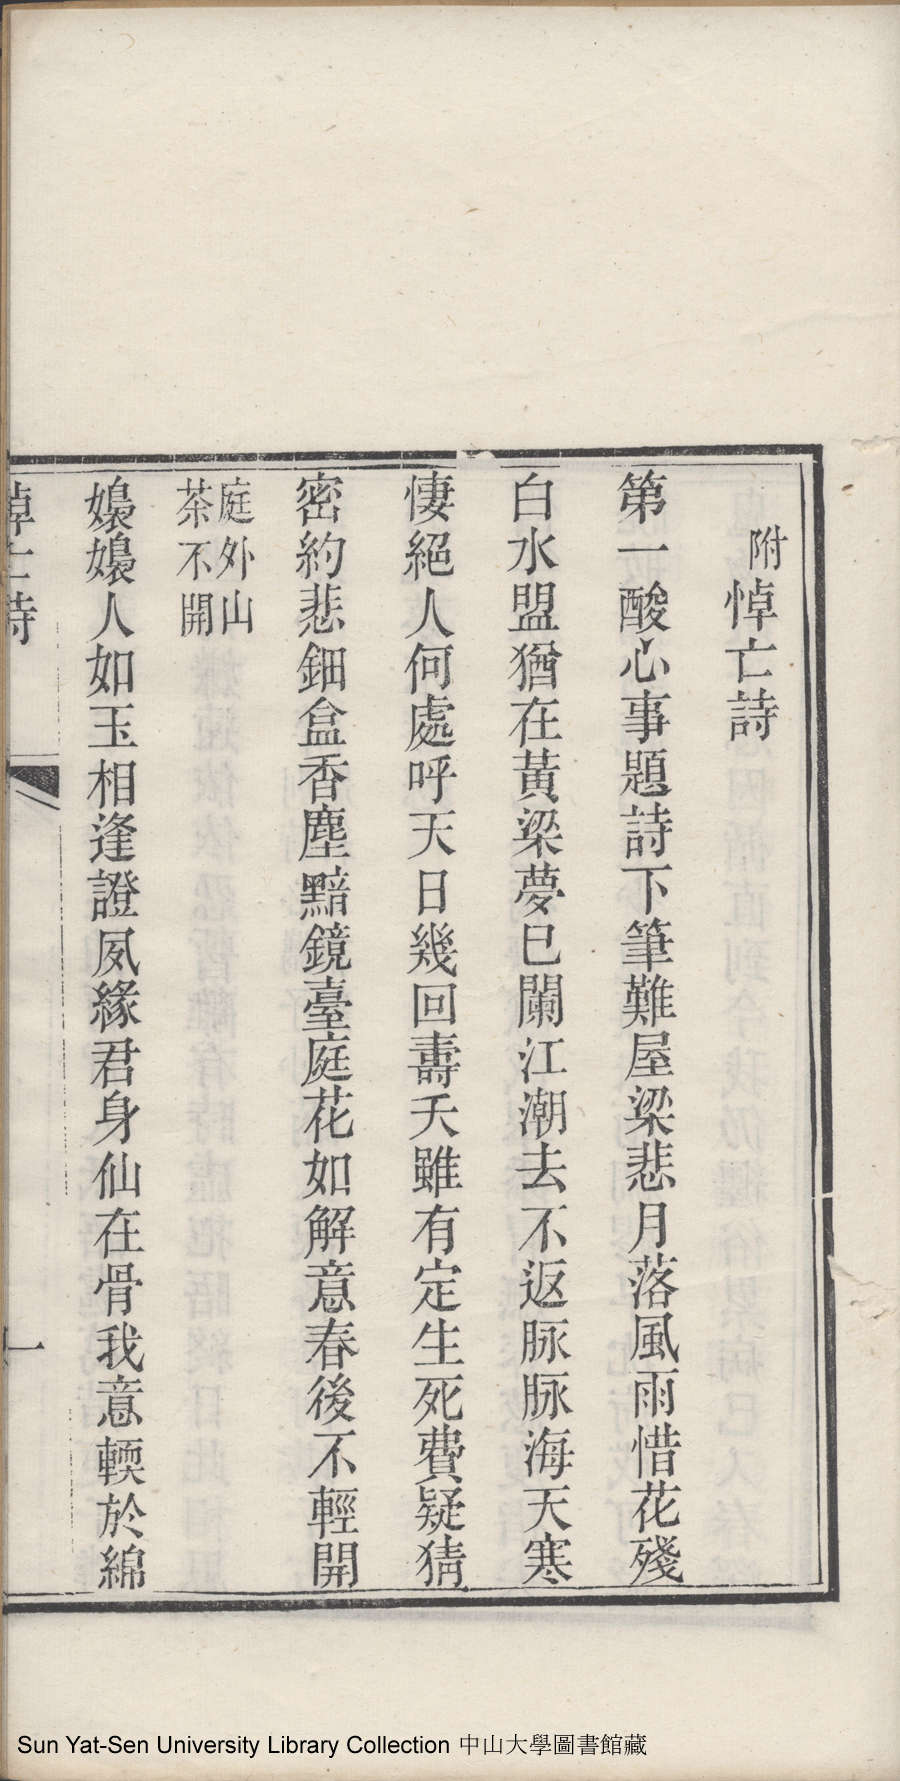 附悼亡詩
第一酸心事題詩下筆難屋梁悲月落風雨惜花殘
白水盟猶在黃梁夢已闌江潮去不返脈脈海天寒
悽絕人何處呼天日幾回壽夭雖有定生死費疑猜
密約悲鈿盒香塵黯鏡臺庭花如解意春後不輕開
庭外山
茶不開
嬝嬝人如玉相逢證夙緣君身仙在骨我意輭於綿
悼亡詩
一
Sun Yat-Sen University Library Collection 中山大學圖書館藏